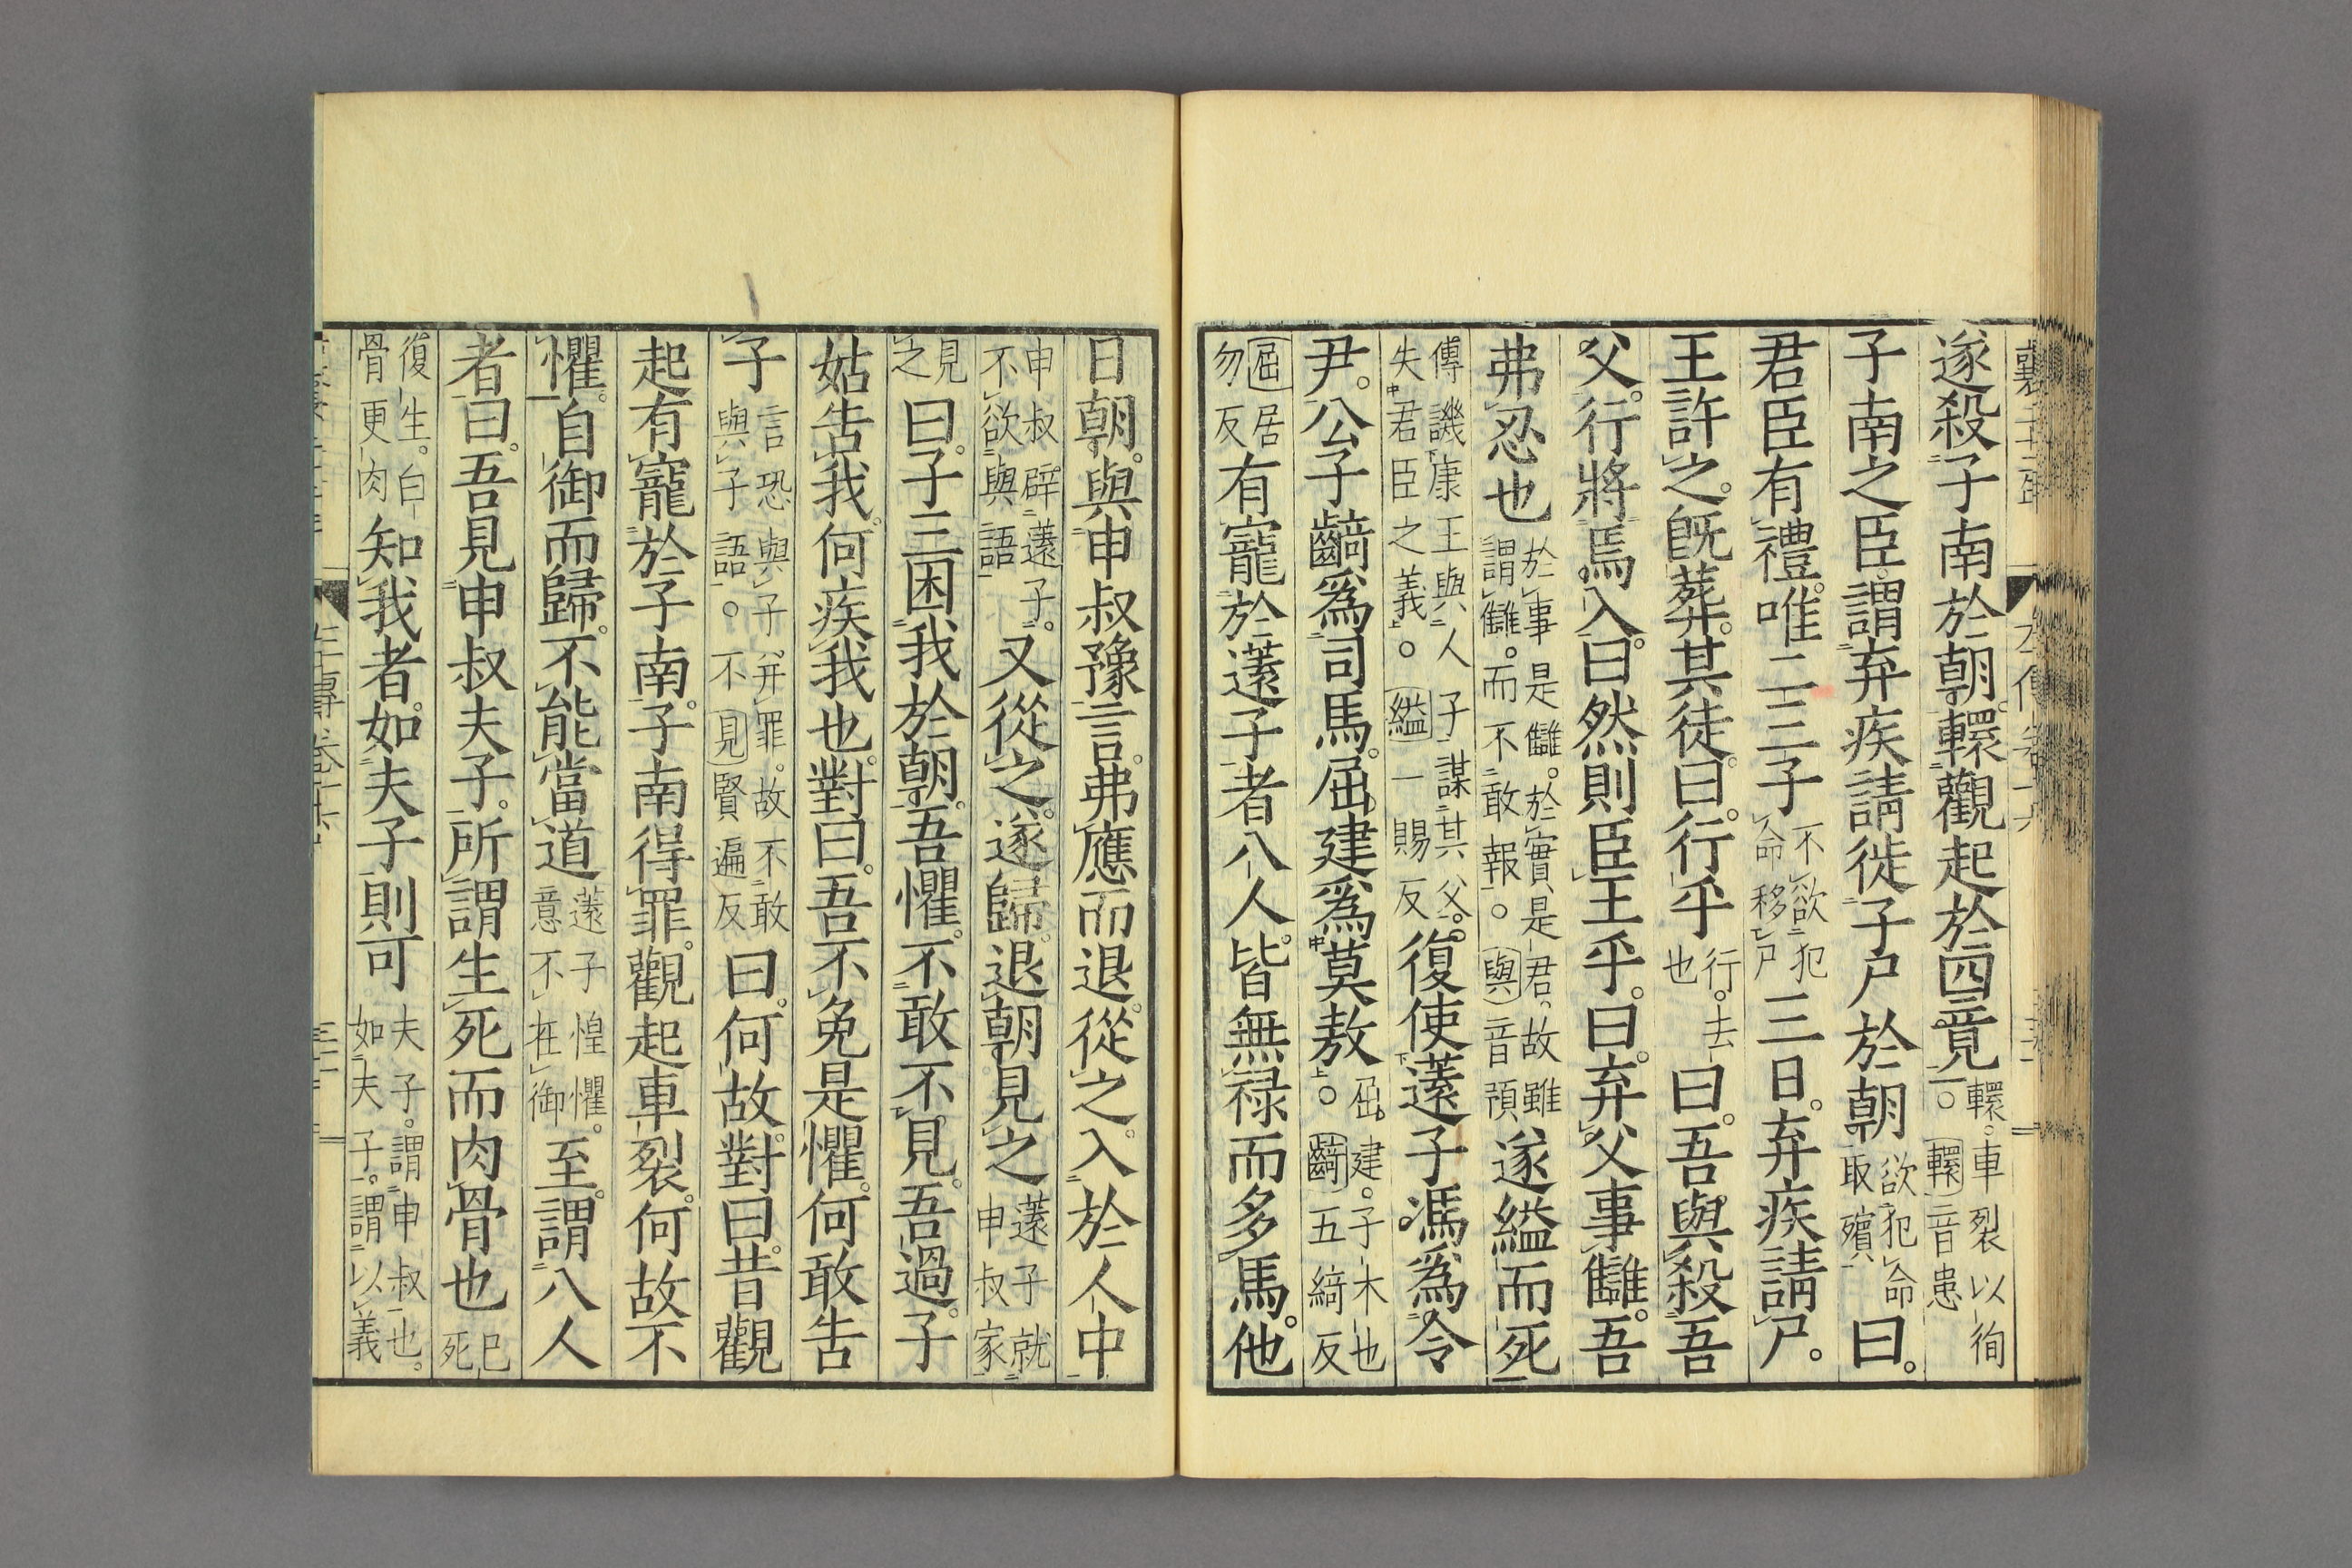 遂殺子南於朝。轘觀起於四竟。轘。車裂以徇○轘音患
子南之臣。謂弃疾請徙子尸於朝欲犯命取殯曰。
君臣有禮。唯二三子不欲犯命移尸三日。弃疾請尸。
王許之。既葬。其徒曰。行乎行。去也曰。吾與殺吾
父。行將焉入。曰。然則臣王乎。曰。弃父事讎。吾
弗忍也於事是讎。於實是君。故雖謂讎。而不敢報○與音預遂縊而死
傅譏康王與人子謀其父。失君臣之義○縊一賜反復使薳子馮爲令
尹。公子齮爲司馬。屈建爲莫敖屈建。子木也○齮五綺反
屈居勿反有寵於薳子者八人。皆無祿而多馬。他
日朝。與申叔豫言。弗應而退。從之。入於人中
申叔辟薳子。不欲與語又從之。遂歸。退朝見之薳子就申叔家
見之曰。子三困我於朝。吾懼。不敢不見。吾過。子
姑告我。何疾我也。對曰。吾不免是懼。何敢告
子言恐與子并罪。故不敢與子語○不見賢遍反曰。何故。對曰。昔觀
起有寵於子南。子南得罪。觀起車裂。何故不
懼。自御而歸。不能當道薳子惶懼。意不在御至。謂八人
者曰。吾見申叔夫子。所謂生死而肉骨也已死
復生。白骨更肉知我者。如夫子則可夫子。謂申叔也。如夫子。謂以義